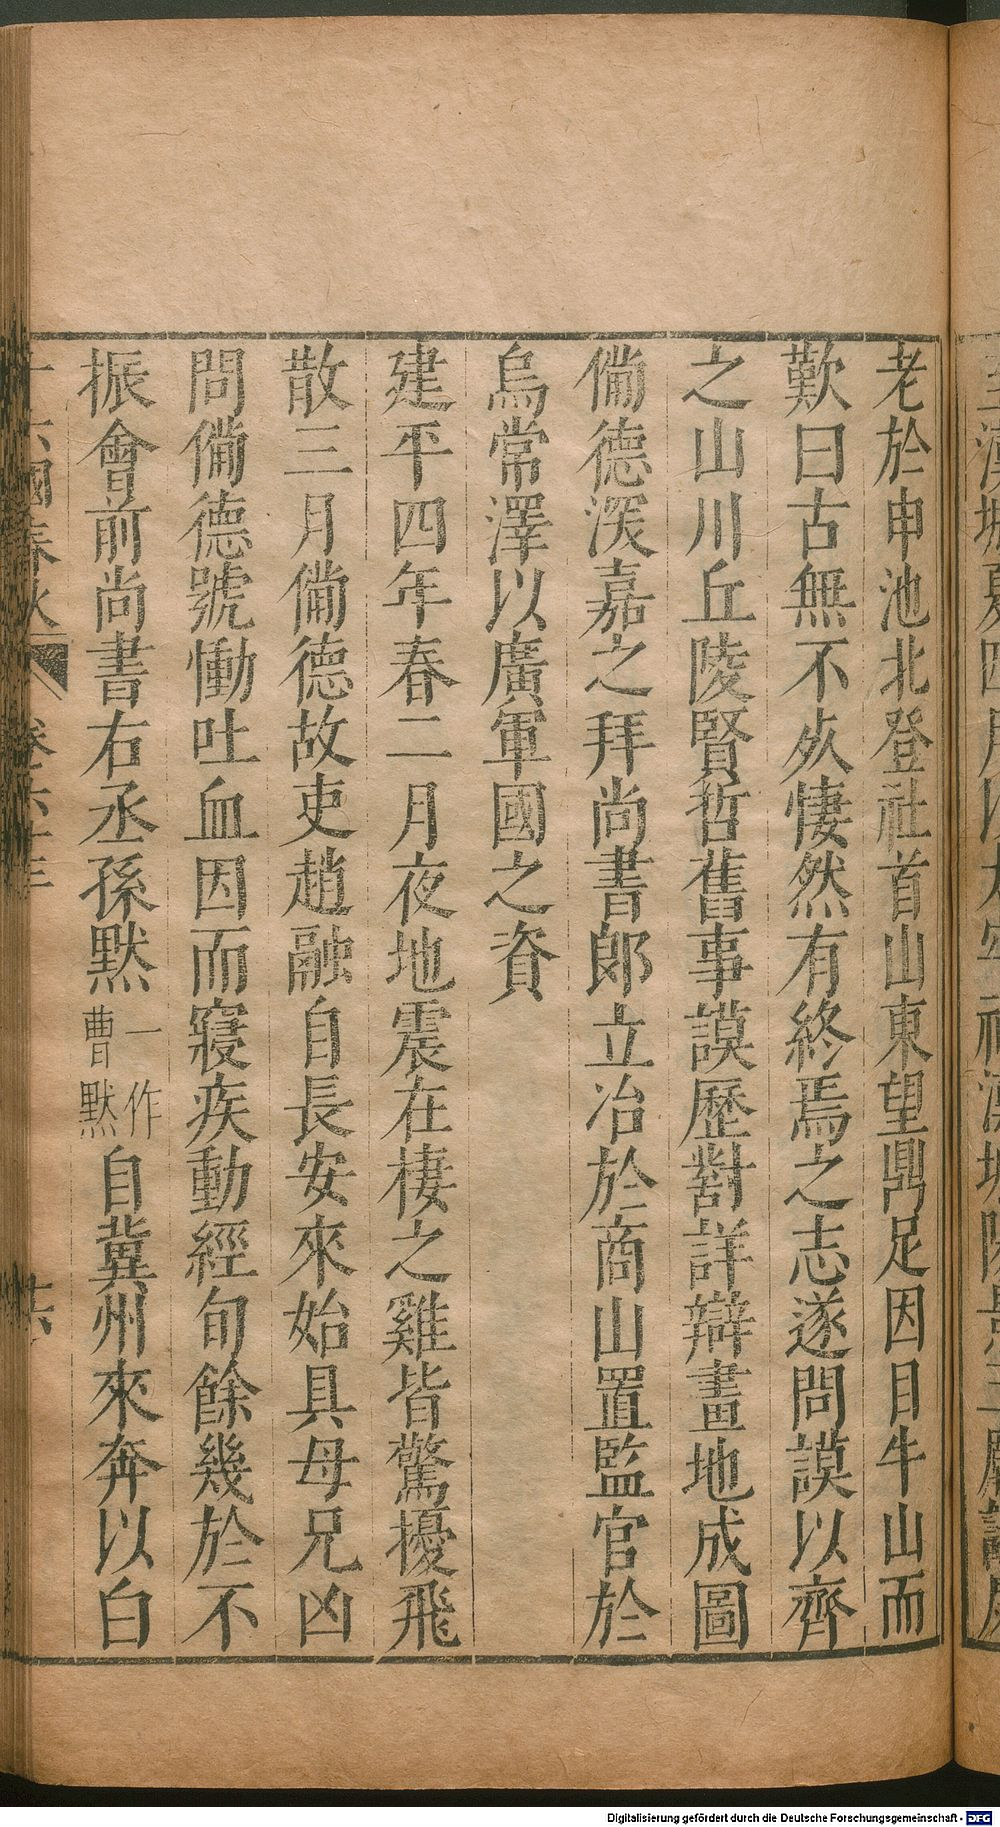 老於申池北登社首山東望鼎足因目牛山而
歎曰古無不死悽然有終焉之志遂問謨以齊
之山川丘陵賢哲舊事謨歷對詳辯畫地成圖
備德深嘉之拜尚書郎立冶於商山置監官於
烏常澤以廣軍國之資
建平四年春二月夜地震在棲之雞皆驚擾飛
散三月備德故吏趙融自長安來始具母兄凶
問備德號慟吐血因而寢疾動經旬餘幾於不
振會前尚書右丞孫默一作曹默自冀州來奔以白
十六國春秋 卷六十三 十六
Digitalisierung gefördert durch die Deutsche Forschungsgemeinschaft - DFG